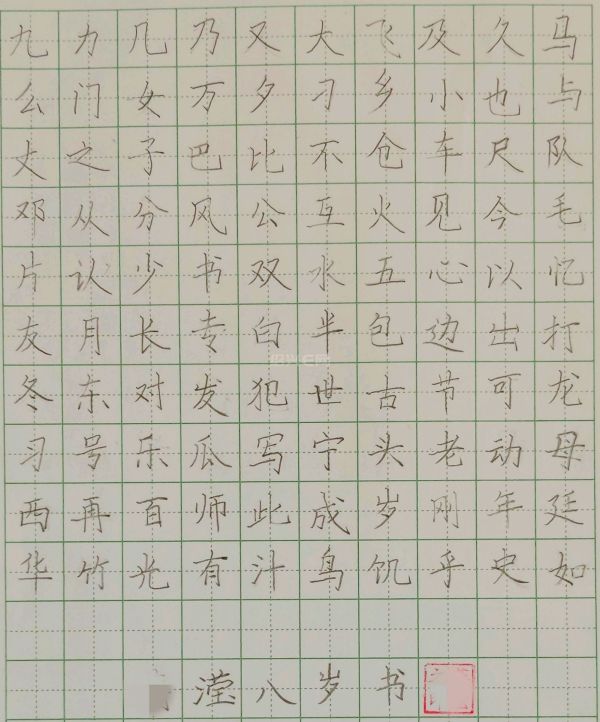 九力几乃又大飞及久马
么门女万夕刁乡小也与
丈之子巴比不仓车尺队
邓从分风公互火见今毛
片认少书双水五心以忆
友月长专白半包边出打
冬东对发犯世古节可龙
习号乐瓜写宁头老动母
西再百师此成岁刚年廷
华竹光有汁鸟饥乎史如
滢八岁书